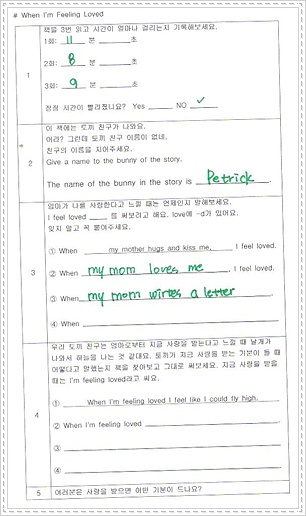 # When I'm Feeling Loved
1
책을 3번 읽고 시간이 얼마나 걸리는지 기록해보세요.
1회: 11 분 초
2회: 8 분 초
3회: 9 분 초
점점 시간이 빨라졌니요? Yes NO ✓
2
이 책에는 토끼 친구가 나와요.
어라? 그런데 토끼 친구 이름이 없네.
친구의 이름을 지어주세요.
Give a name to the bunny of the story.
The name of the bunny in the story is Petrick.
3
엄마가 나를 사랑한다고 느낄 때는 언제인지 말해보세요.
I feel loved 를 써보려고 해요. love에 -d가 있어요.
잊지 말고 꼭 붙여주세요.
① When my mother hugs and kiss me, I feel loved.
② When my mom loves me, I feel loved.
③ When my mom wirtes a letter
④ When
4
우리 토끼 친구는 엄마로부터 지금 사랑을 받는다고 느낄 때 날개가
나와서 하늘을 나는 것 같대요. 토끼가 지금 사랑을 받는 기분이 들 때
어떻다고 말했는지 책을 찾아보고 그대로 써보세요. 지금 사랑을 받을
때는 I'm feeling loved라고 써요.
① When I'm feeling loved I feel like I could fly high.
② When I'm feeling loved
③
④
5 여러분은 사랑을 받으면 어떤 기분이 드나요?